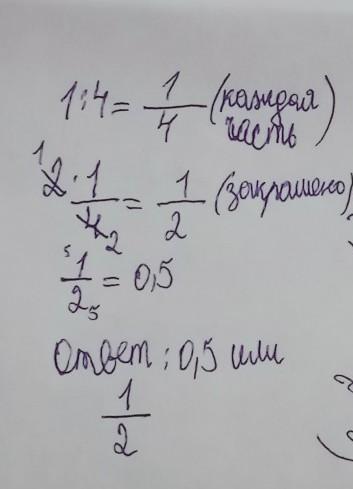 1:4 = 1/4 (каждая часть)
2·1/4 = 1/2 (закрашено)
1/2 = 0,5
Ответ: 0,5 или
1/2